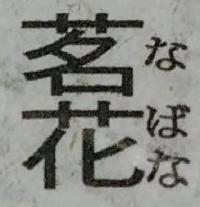 茗花
なばな